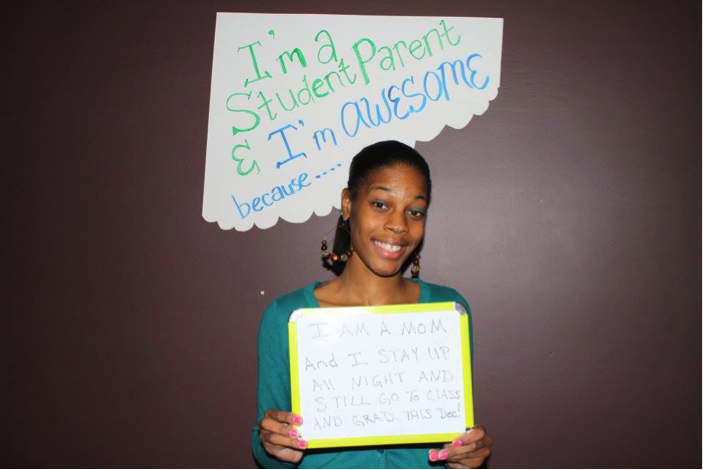 I'm a
Student Parent
& I'm AWESOME
because....
I AM A MOM
And I STAY UP
All NIGHT AND
STILL GO To ClASS
AND GRAD. THIS Dec!